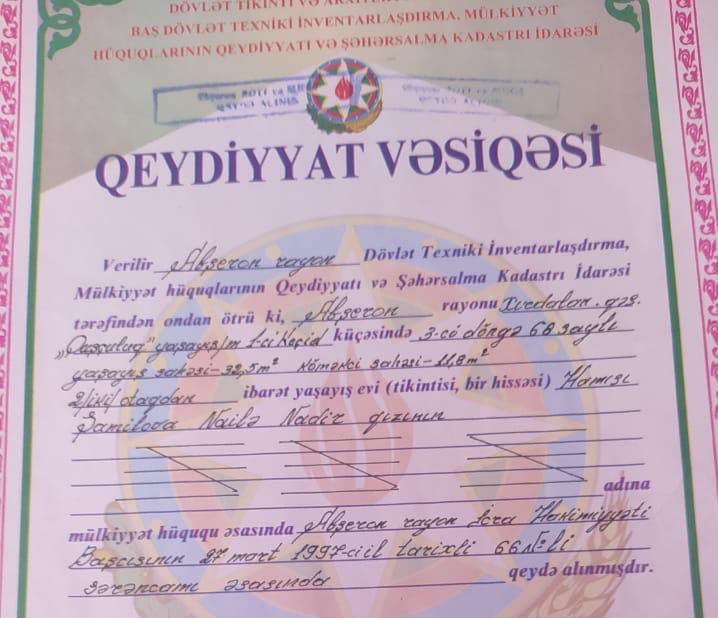 DÖVLƏT TİKİNTİ VƏ
BAŞ DÖVLƏT TEXNİKİ İNVENTARLAŞDIRMA, MÜLKİYYƏT
HÜQUQLARININ QEYDİYYATI VƏ ŞƏHƏRSALMA KADASTRI İDARƏSİ
QEYDƏ ALINIB
QEYDİYYAT VƏSİQƏSİ
Verilir Abşeron rayon Dövlət Texniki İnventarlaşdırma,
Mülkiyyət hüquqlarının Qeydiyyatı və Şəhərsalma Kadastrı İdarəsi
tərəfindən ondan ötrü ki, Abşeron rayonu Xırdalan qəs.
yaşayış/m 1-ci keçid küçəsində 3-cü döngə 68 saylı
yaşayış sahəsi-32,5m² köməkçi sahəsi-11,8m²
2/iki/otaqdan ibarət yaşayış evi (tikintisi, bir hissəsi) Hamısı
Şamilova Nailə Nadir qızının
adına
mülkiyyət hüququ əsasında Abşeron rayon İcra Hakimiyyəti
Başçısının 27 mart 1997-ci il tarixli 66 №-li
sərəncamı əsasında qeydə alınmışdır.